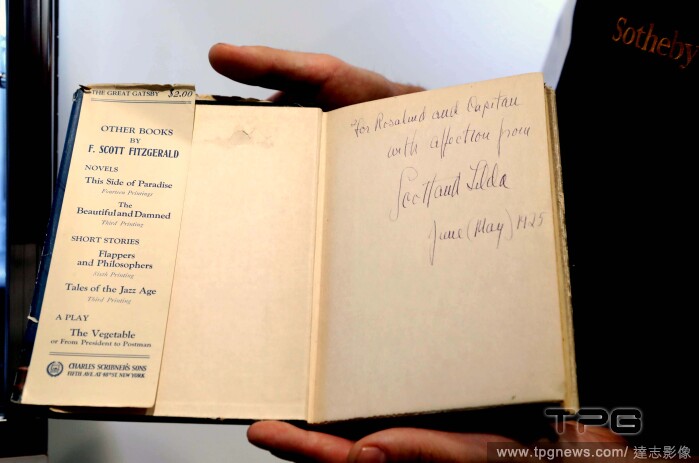 THE GREAT GATSBY $2.00
OTHER BOOKS
BY
F. SCOTT FITZGERALD
NOVELS
This Side of Paradise
Fourteen Printings
The
Beautiful and Damned
Third Printing
SHORT STORIES
Flappers
and Philosophers
Sixth Printing
Tales of the Jazz Age
Third Printing
A PLAY
The Vegetable
or From President to Postman
CHARLES SCRIBNER'S SONS
FIFTH AVE. AT 48TH ST. NEW YORK
For Rosalind and Capitan
with affection from
Scott and Zelda
June (May) 1925
Sotheby
TPG
www.tpgnews.com/ 達志影像